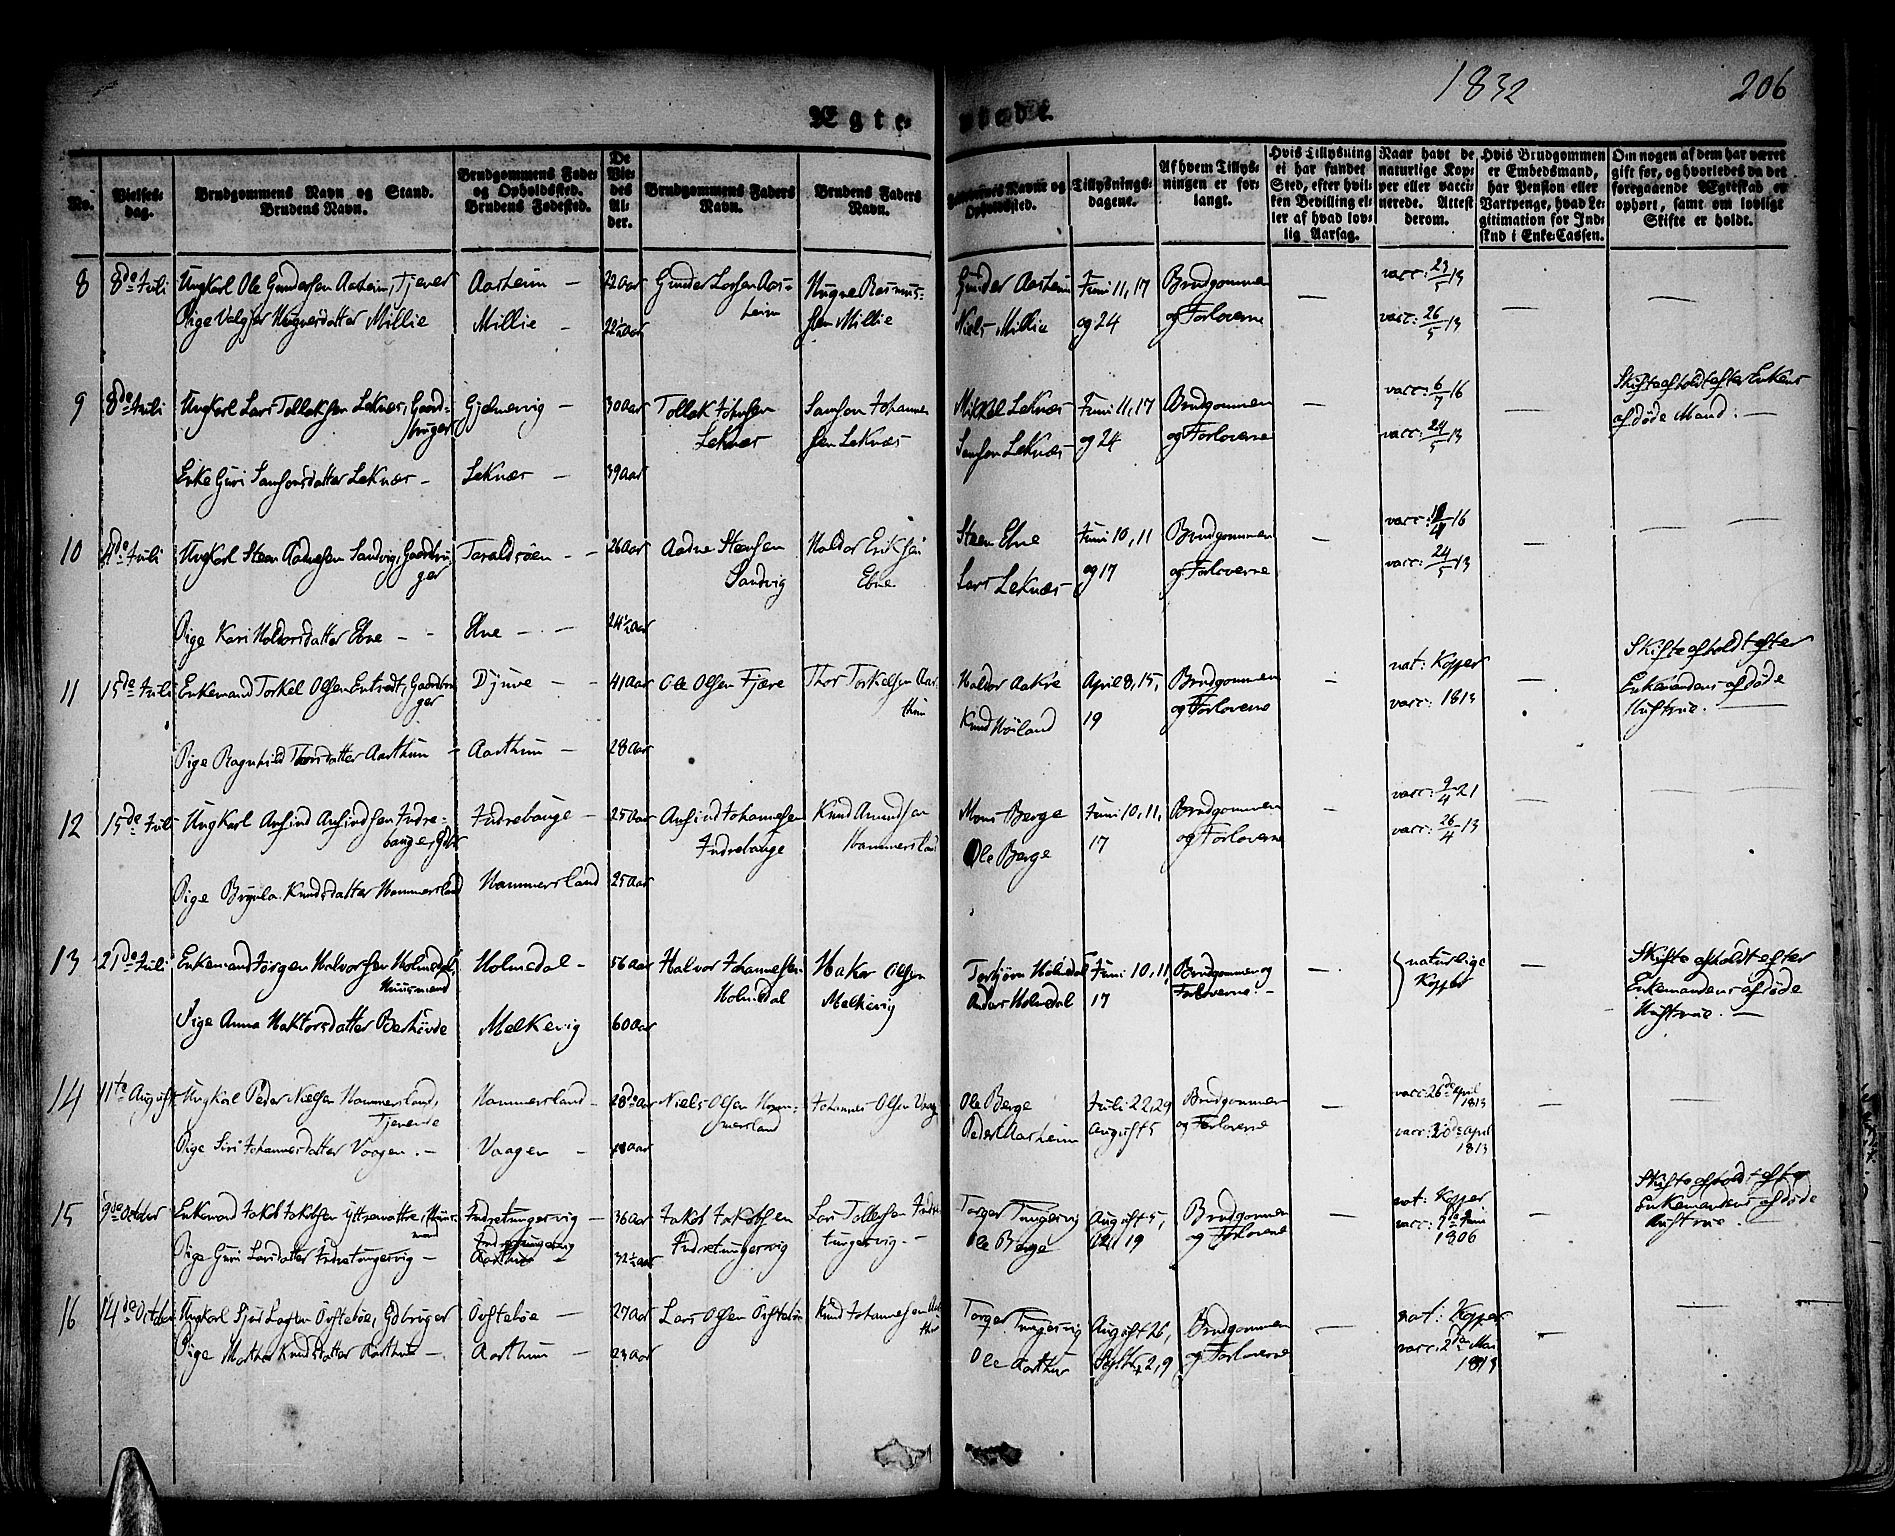 1832
206
Ægte viede.
No.
Vielses-dag.
Brudgommens Navn og Stand. Brudens Navn.
Brudgommens Føde- og Opholdssted. Brudens Fødested.
De Viedes Alder.
Brudgommens Faders Navn.
Brudens Faders Navn.
Forlovernes Navne og Opholdssted.
Tillysnings-dagene.
Af hvem Tillysningen er forlangt.
Hvis Tillysning ei har fundet Sted, efter hvilken Bevilling eller af hvad lovlig Aarsag.
Naar havt de naturlige Kopper eller vaccinerede. Attest derom.
Hvis Brudgommen er Embedsmand, har Pension eller Vartpenge, hvad Legitimation for Indskud i Enke-Cassen.
Om nogen af dem har været gift før, og hvorledes da det foregaaende Ægteskab er ophørt, samt om lovligt Skifte er holdt.
8 8de Juli Ungkarl Ole Gundersen Aasheim, Tjener Aasheim — 22 Aar Gunder Larsen Aasheim Gunder Aasheim Juni 11, 17 Brudgommen — vacc: 23/5 13 — —
Pige Millie Millie — 22½ Aar Millie Niels Millie og 24 og Forloverne vacc: 26/5 13
9 8de Juli Ungkarl Lars Tollaksen Leknæs, Gaardbruger Gjelmervig — 30 Aar Tollak Johnsen Leknæs Samson Johannessen Leknæs Mikkel Leknæs Juni 11, 17 Brudgommen — vacc: 6/7 16 — Skifte afholdt efter Enkens
Enke Guri Samsonsdatter Leknæs — Leknæs — 39 Aar Samson Leknæs og 24 og Forloverne vacc: 24/5 13 afdøde Mand. —
10 4de Juli Ungkarl Steen Aadnesen Sandvig, Gaardbruger Taraldsøen — 26 Aar Aadne Steensen Sandvig Haldor Eriksen Ebne Steen Ebne Juni 10, 11 Brudgommen — vacc: 16 — —
Pige Kari Haldorsdatter Ebne — Ebne — 24½ Aar Lars Leknæs og 17 og Forloverne vacc: 24/5 13
11 15de Juli Enkemand Torkel Olsen Entredt, Gaardbruger Djuve — 41 Aar Ole Olsen Fjære Thor Torkelsen Aarthun Haldor Aakre April 8, 15, Brudgommen — nat: Kopper — Skifte afholdt efter
Pige Ragnhild Thorsdatter Aarthun — Aarthun — 28 Aar Knud Høiland 19 og Forloverne vacc: 1813 Enkemandens afdøde Hustrue. —
12 15de Juli Ungkarl Anfind Anfindsen Indrebauge, Gdbr Indrebauge — 25 Aar Anfind Johannesen Indrebauge Knud Amundsen Hammersland Mons Berge Juni 10, 11, Brudgommen — vacc: 9/4 21 —
Pige Brynla Knudsdatter Hammersland Hammersland 25 Aar Ole Berge 17 og Forloverne vacc: 26/4 13
13 21de Juli Enkemand Jørgen Halvorsen Holmedal, Huusmand Holmedal — 56 Aar Halvor Johannesen Holmedal Olsen Melkevig Torbjörn Holmedal Juni 10, 11 Brudgommen og — naturlige — Skifte afholdt efter
Pige Anna Melkevig 60 Aar Anders Holmedal 17 Forloverne. — Kopper Enkemandens afdøde Hustrue. —
14 11te August Ungkarl Peder Nielsen Hammersland, Tjenende Hammersland — 28de Aar Niels Olsen Hammersland Johannes Olsen Vaag Ole Berge Juli 22, 29 Brudgommen — vacc: 26de April 1813 — —
Pige Siri Johannesdatter Vaagen. — Vaagen — Aar Peder Aasheim August 5 og Forloverne vacc: April 1813
15 9de Octber Enkemand Jakob Jakobsen Yttremattre, Huusmand Indretungesvig — 36 Aar Jakob Jakobsen Indretungesvig Lars Tollefsen Indretungesvig. — Torger Tungesvig August 5, Brudgommen — nat: Kopper — Skifte afholdt efter
Pige Guri Larsdatter Indretungesvig — 32½ Aar Ole Berge 19 og Forloverne vacc: Juni 1806 Enkemandens afdøde Hustrue. —
16 14de October Ungkarl Sjur Larsen Østebøe, Gdbruger Østebøe — 27 Aar Lars Olsen Østebøe Knud Johannesen Aarthun Torger Tungesvig August 26, Brudgommen — nat: Kopper — —
Pige Marthe Knudsdatter Aarthun — Aarthun — 23 Aar Ole Aarthun Septbr 2, 9 og Forloverne vacc: 2den Mai 1813